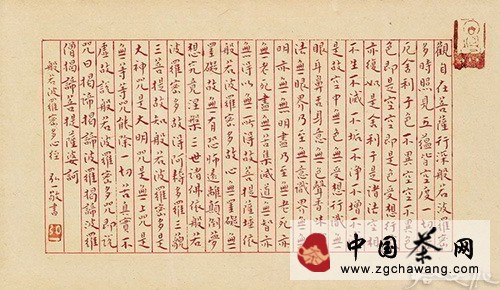 觀自在菩薩行深般若波羅蜜
多時照見五蘊皆空度一切苦
厄舍利子色不異空空不異色
色即是空空即是色受想行識
亦復如是舍利子是諸法空相
不生不滅不垢不淨不增不減
是故空中無色無受想行識無
眼耳鼻舌身意無色聲香味觸
法無眼界乃至無意識界無無
明亦無無明盡乃至無老死亦
無老死盡無苦集滅道無智亦
無得以無所得故菩提薩埵依
般若波羅蜜多故心無罣礙無
罣礙故無有恐怖遠離顛倒夢
想究竟涅槃三世諸佛依般若
波羅蜜多故得阿耨多羅三藐
三菩提故知般若波羅蜜多是
大神咒是大明咒是無上咒是
無等等咒能除一切苦真實不
虛故說般若波羅蜜多咒即說
咒曰揭諦揭諦波羅揭諦波羅
僧揭諦菩提薩婆訶
般若波羅蜜多心經 弘一敬書
中国茶网
www.zgchawang.com